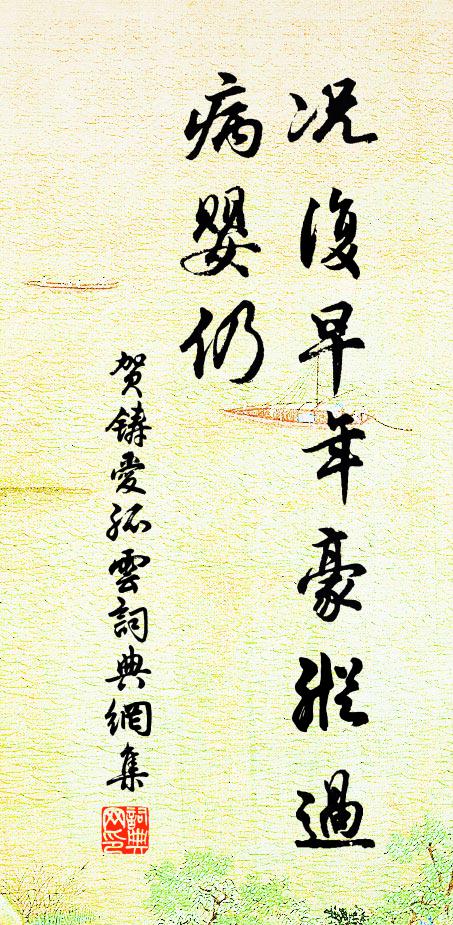 况復早年豪縱過
病嬰仍
贺鑄愛孤雲詞典網集
詞典網印